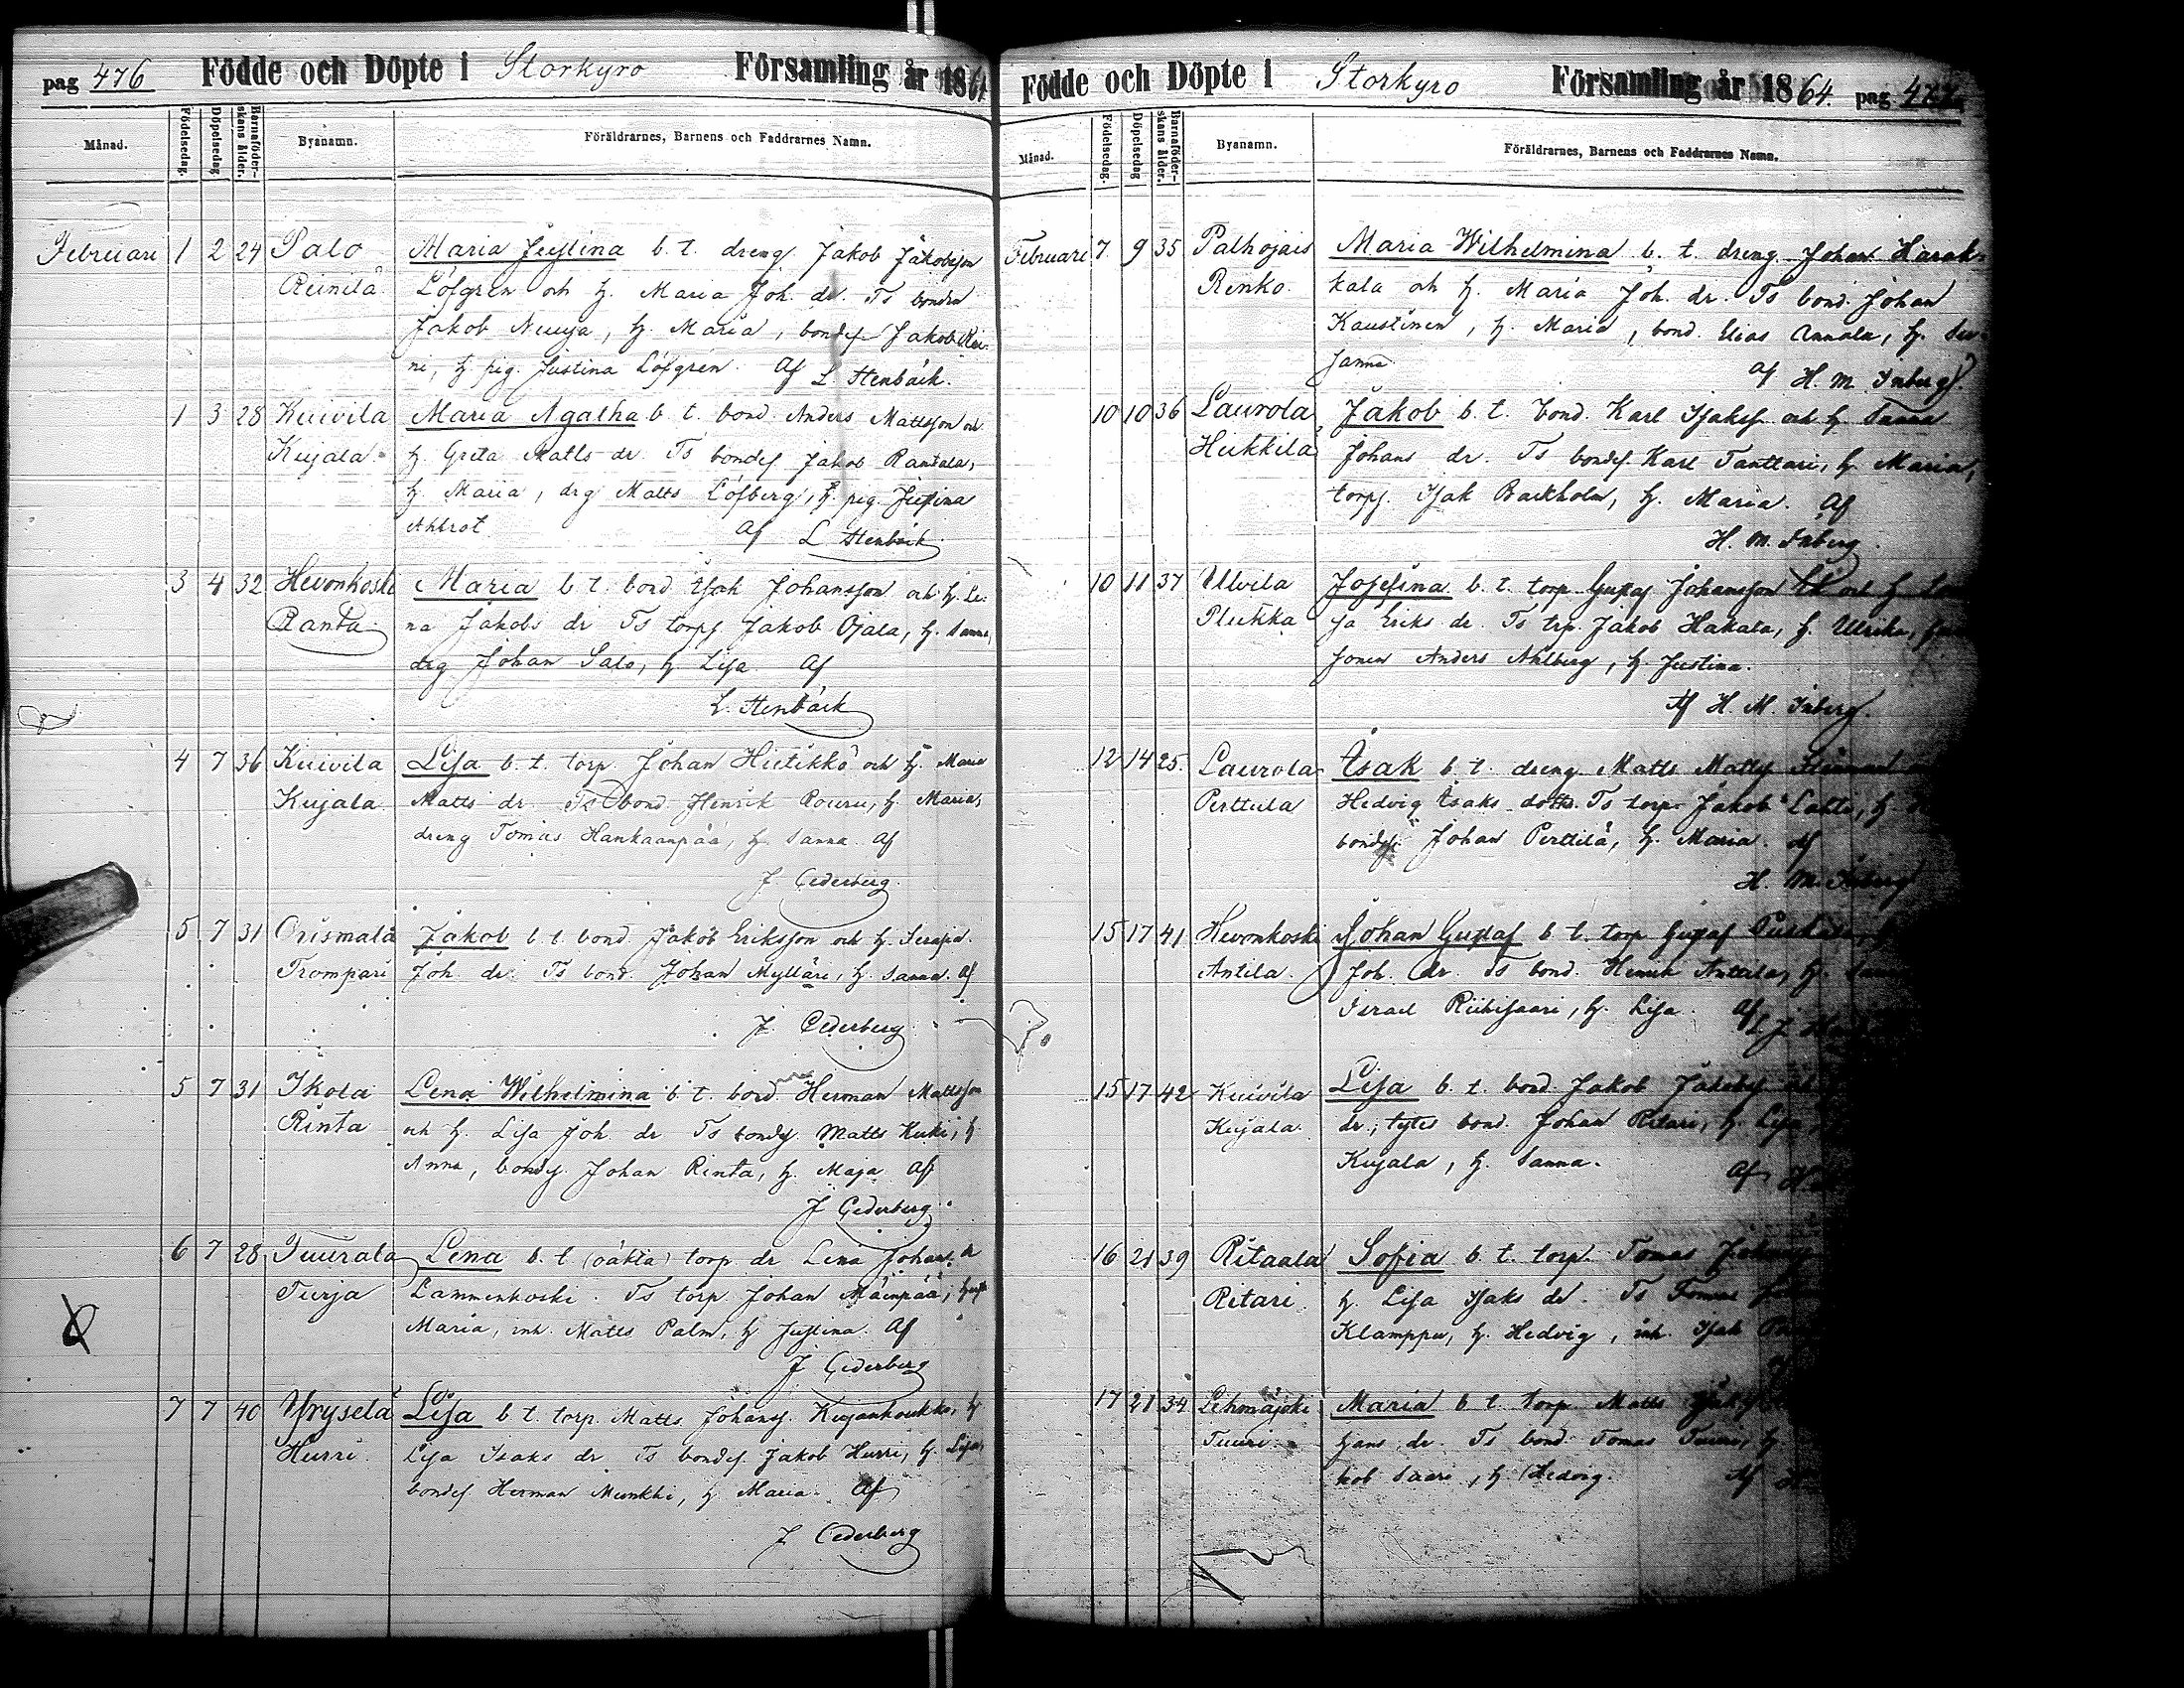 pag 476 Födde och Döpte i Storkyro Församling år 1864
Månad. Födelsedag. Döpelsedag Barnaföder-skans ålder. Byanamn. Föräldrarnes, Barnens och Faddrarnes Namn.
Februari 1 2 24 Palo Maria Justina b. t. dreng Jakob Jakobsson
Reinilä Löfgren och h. Maria Joh. dr. Ts bondes
Jakob h. Maria, bondes Jakob Rei-
ni, h pig. Justina Löfgrén. Af L Stenbäck.
1 3 28 Kuivila Maria Agatha b t. bond. Anders Mattsson och
Kujala. h Greta Matts dr. Ts bondes Jakob Rantala,
h. Maria, drg Matts Löfberg, h. pig. Justina
Ahlrot Af L Stenbäck
3 4 32 Hevonkoski Maria b t. bond Isak Johansson och h. Le-
Ranta na Jakobs dr Ts torps Jakob Ojala, h. Sanna,
drg Johan Salo, h Lisa. Af
L. Stenbäck
4 7 36 Kuivila Lisa b. t. torp. Johan Hietikkö och h. Maria
Kujala Matts dr. Ts bond Henrik Rouru, h. Maria,
dreng Tomas Hankaanpää, h Sanna. Af
J. Cederberg.
5 7 31 Orismala Jakob b t. bond Jakob Eriksson och h. Serafia
Trompari Joh dr. Ts bond. Johan Mylläri, h. Sanna. Af
J. Cederberg
5 7 31 Ikola Lena Wilhelmina b. t. bond Herman Mattsson
Rinta och h. Lisa Joh dr Ts bondes Matts Kuki, h
Anna, bondes. Johan Rinta, h. Maja Af
J Cederberg
6 7 28 Tuurala Lena b. t (oäkta) torp dr Lena Johans dr
Turja Lammenkoski. Ts torp Johan Mäenpää, hust
Maria, inh. Matts Palm, h Justina. Af
J Cederberg
7 7 40 Yryselä Lisa b t. torp. Matts Johanss. Kujankoukko, h
Hurri Lisa Isaks dr Ts bondes Jakob Hurri, h. Lisa,
bondes Herman Munkki, h Maria. Af
J Cederberg
Födde och Döpte i Storkyro Församling år 1864. pag 477
Månad. Födelsedag. Döpelsedag Barnaföder-skans ålder. Byanamn. Föräldrarnes, Barnens och Faddrarnes Namn.
Februari 7. 9 35 Palhojais Maria Wilhelmina b. t. dreng Johan Harak-
Renko. kala och h. Maria Joh. dr. Ts bond. Johan
Kaustinen, h. Maria, bond. Elias Annala, h. Su-
sanna. Af H. M. Inberg.
10 10 36 Laurola Jakob b t. bond. Karl Isakss och h Sanna
Heikkilä Johans dr. Ts bondes. Karl Tanttari, h. Maria,
torps. Isak Backholm, h. Maria. Af
H. M. Inberg.
10 11 37 Ulvila Josefina b. t. torp Gustaf Johansson och h
Plukka sa Eriks dr. Ts trp. Jakob Hakala, h. Ulrika,
sonen Anders Ahlberg, h. Justina.
Af H. M. Inberg.
12 14 25. Laurola Isak b t. dreng Matts Matts
Perttula Hedvig Isaks dotter. Ts torp Jakob Lahti, h.
bondes. Johan Perttilä, h. Maria. Af
H. M. Inberg
15 17 41 Hevonkoski Johan Gustaf b t. torp Gustaf
Antila. Joh. dr. Ts bond. Henrik Anttila, h.
Israel Riihisaari, h. Lisa. Af
15 17 42 Kuivila Lisa b. t. bond Jakob
Kujala. dr; tytes bond. Johan Ritari, h. Lisa
Kujala, h. Sanna. Af
16 21 39 Ritaala Sofia b t. torp. Tomas
Ritari. h. Lisa Isaks dr. Ts Tomas
Klamppu, h. Hedvig, inh. Isak
17 21 34 Lehmäjoki Maria b t. torp Matts
Tuuri. hans dr. Ts bond. Tomas Tuuri, h.
kob Saari, h. Hedvig. Af